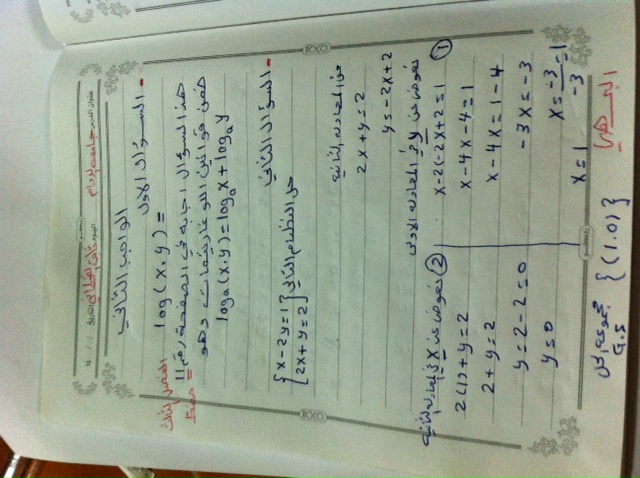 الواجب الثاني
- السؤال الاول
log (x.y) =
هذا السؤال اجابه في الصفحة رقم 11
ضمن قوانين اللوغاريتمات وهو
loga (x.y) = loga x + loga y
- السؤال الثاني
حل النظام التالي
{ x - 2y = 1
2x + y = 2 }
من المعادلة الثانية
2x + y = 2
y = -2x + 2
① نعوض عن y في المعادلة الاولى
x - 2(-2x + 2 = 1
x - 4x - 4 = 1
x - 4x = 1 - 4
-3x = -3
x = -3/-3 = 1
x = 1
② نعوض عن x في المعادلة الثانية
2(1) + y = 2
2 + y = 2
y = 2 - 2 = 0
y = 0
G.S
{(1.0)}